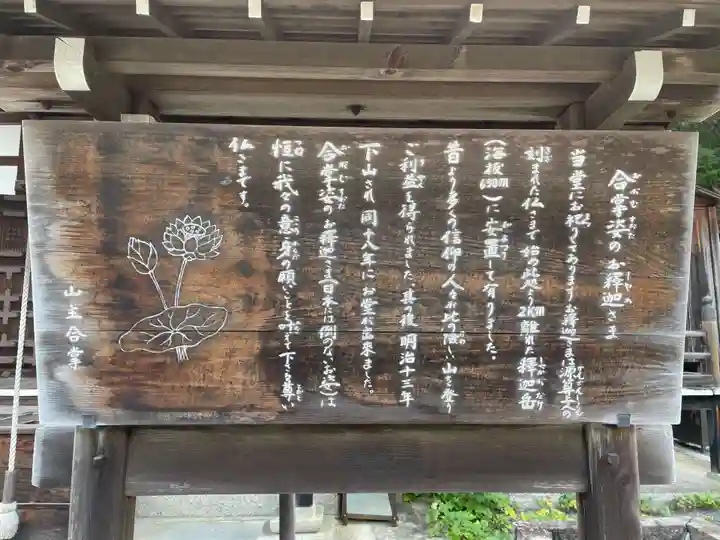 合掌姿のお釈迦さま
当堂にお祀りしてありますお釈迦さまは源算上人の
刻まれた仏さまで始め此処より2km離れた釈迦岳
(海抜630m)に安置して有りました。
昔より多くの信仰の人々が此の険しい山を登り
ご利益を得られました。其の後明治十三年
下山され同十八年にお堂が出来ました。
合掌姿のお釈迦さま(日本には例のないお姿)は
恒に我々の意身の願いごとを叶えて下さる尊い
仏さまです。
山主合掌